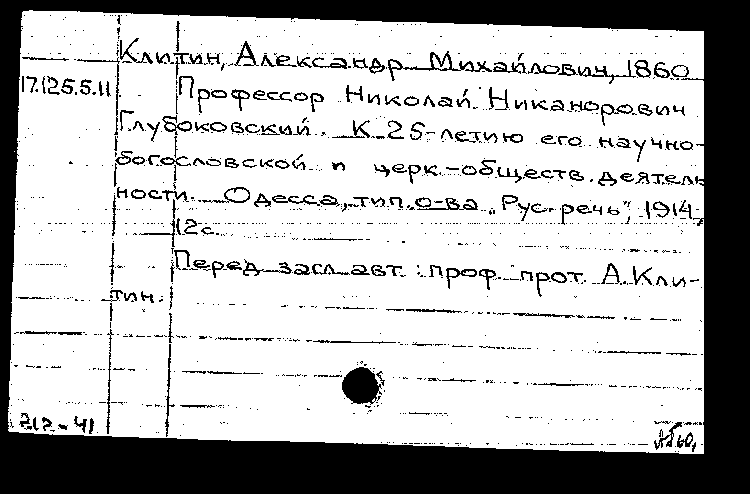 Клитин, Александр Михайлович, 1860
17.125.5.11
Профессор Николай Никанорович
Глубоковский. К 25-летию его научно-
богословской и церк.-обществ. деятель
ности. Одесса, тип. о-ва „Рус. речь", 1914,
12с.
Перед загл. авт.: проф. прот. А. Кли-
тин.
212-41